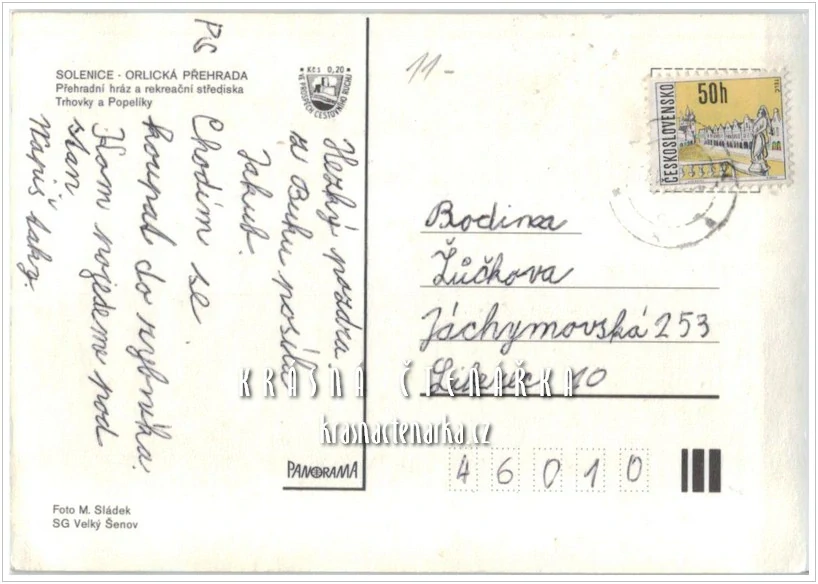 PS
11-
SOLENICE - ORLICKÁ PŘEHRADA
Přehradní hráz a rekreační střediska
Trhovky a Popelíky
Kčs 0,20
VE PROSPĚCH CESTOVNÍHO RUCHU
Hezký pozdrav
z Buku posílá
Jakub.
Chodím se
koupat do rybníka.
pojedeme pod
stan.
Napiš taky.
ČESKOSLOVENSKO
50h
Rodina
Žůčkova
Jáchymovská 253
Liberec 10
KRÁSNÁ ČTENÁŘKA
krasnactenarka.cz
46010
PANORAMA
Foto M. Sládek
SG Velký Šenov